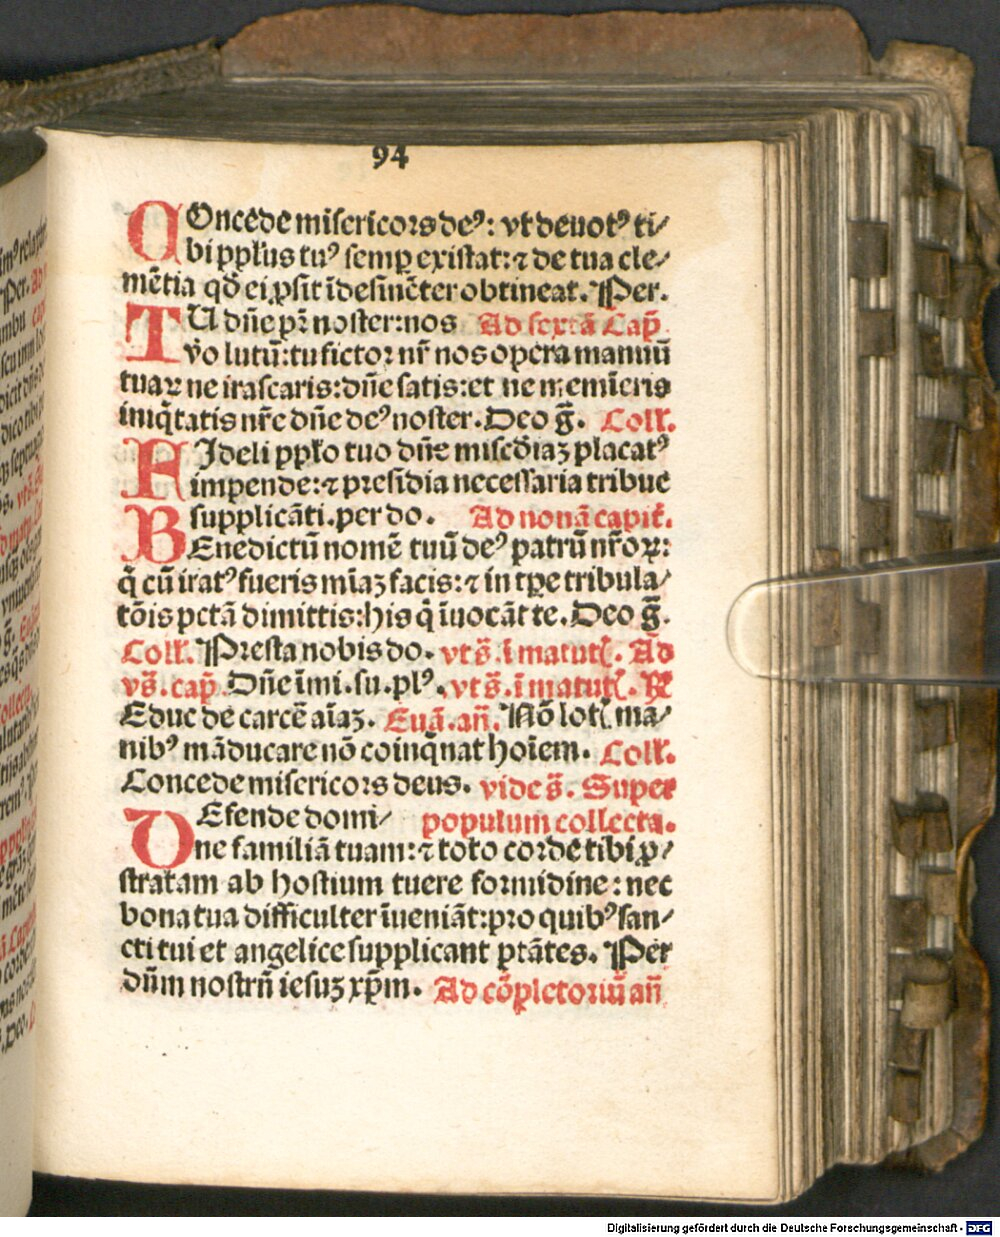 94
COncede misericors deꝰ: vt deuotꝰ ti⸗
bi ppl̓us tuꝰ semꝑ existat: ⁊ de tua cle⸗
mẽtia qđ ei ꝓsit ĩdesinẽter obtineat. Per.
TU dñe pꝛ̃ noster: nos Ad sextã Cap̃
ṽo lutũ: tu fictor nr̃ nos opera manuũ
tuaꝝ ne irascaris: dñe satis: et ne memĩeris
iniq̃tatis nr̃e dñe deꝰ noster. Deo g̃. Coll.
FIdeli ppl̓o tuo dñe misc̃diaʒ placatꝰ
impende: ⁊ presidia necessaria tribue
supplicãti. per do. Ad nonã capit̓.
BEnedictũ nomẽ tuũ deꝰ patrũ nr̃oꝝ:
q̃ cũ iratꝰ fueris mĩaʒ facis: ⁊ in tꝑe tribula⸗
tõis pctã dimittis: his q̃ ĩuocãt te. Deo g̃.
Coll. Presta nobis do. vts̃. ĩ matut̃. Ad
vs̃. cap̃ Dñe ĩmi. su. plꝰ. vts̃. ĩ matut̃. ℟
Educ de carcẽ aĩaʒ. Euã. añ. Nõ lot̃. ma⸗
nibꝰ mãducare nõ coinq̃nat hoĩem. Coll.
Concede misericors deus. vide s̃. Super
DEfende domi⸗ populum collecta.
ne familiã tuam: ⁊ toto corde tibi ꝓ⸗
stratam ab hostium tuere formidine: nec
bona tua difficulter ĩueniãt: pro quibꝰ san⸗
cti tui et angelice supplicant ptãtes. Per
dñm nostrũ iesuʒ xp̃m. Ad cõpletoriũ añ
Digitalisierung gefördert durch die Deutsche Forschungsgemeinschaft - DFG